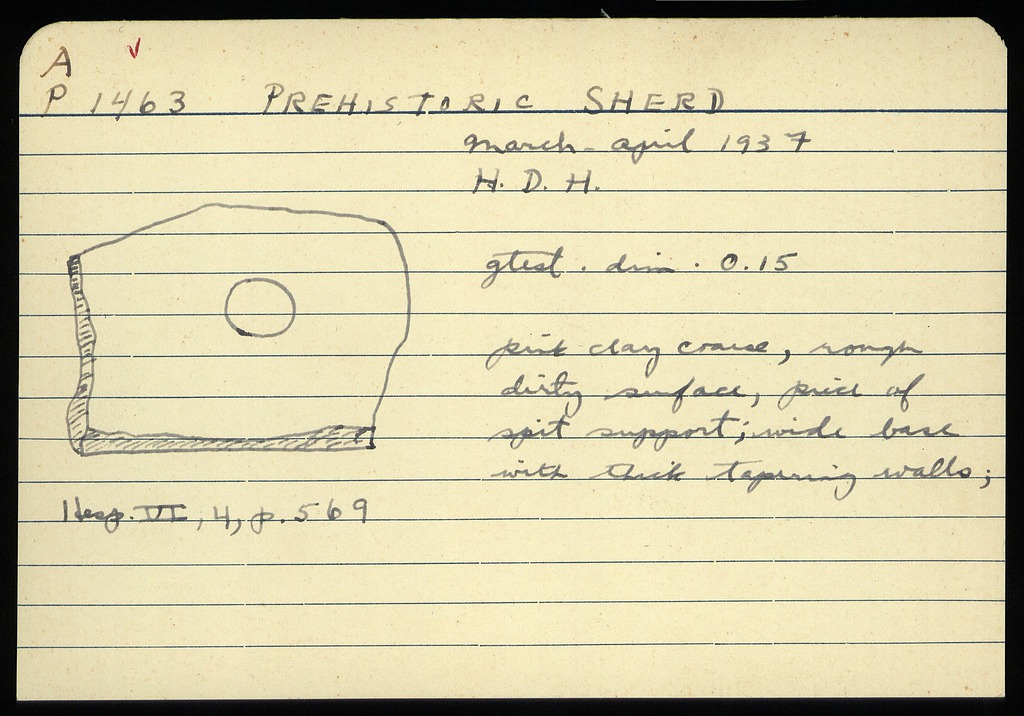 A
P 1463 PREHISTORIC SHERD
March - April 1937
H. D. H.
gtest. dim. 0.15
pink clay coarse, rough
dirty surface, piece of
spit support; wide base
with thick tapering walls;
Hesp. VI, 4, p. 569